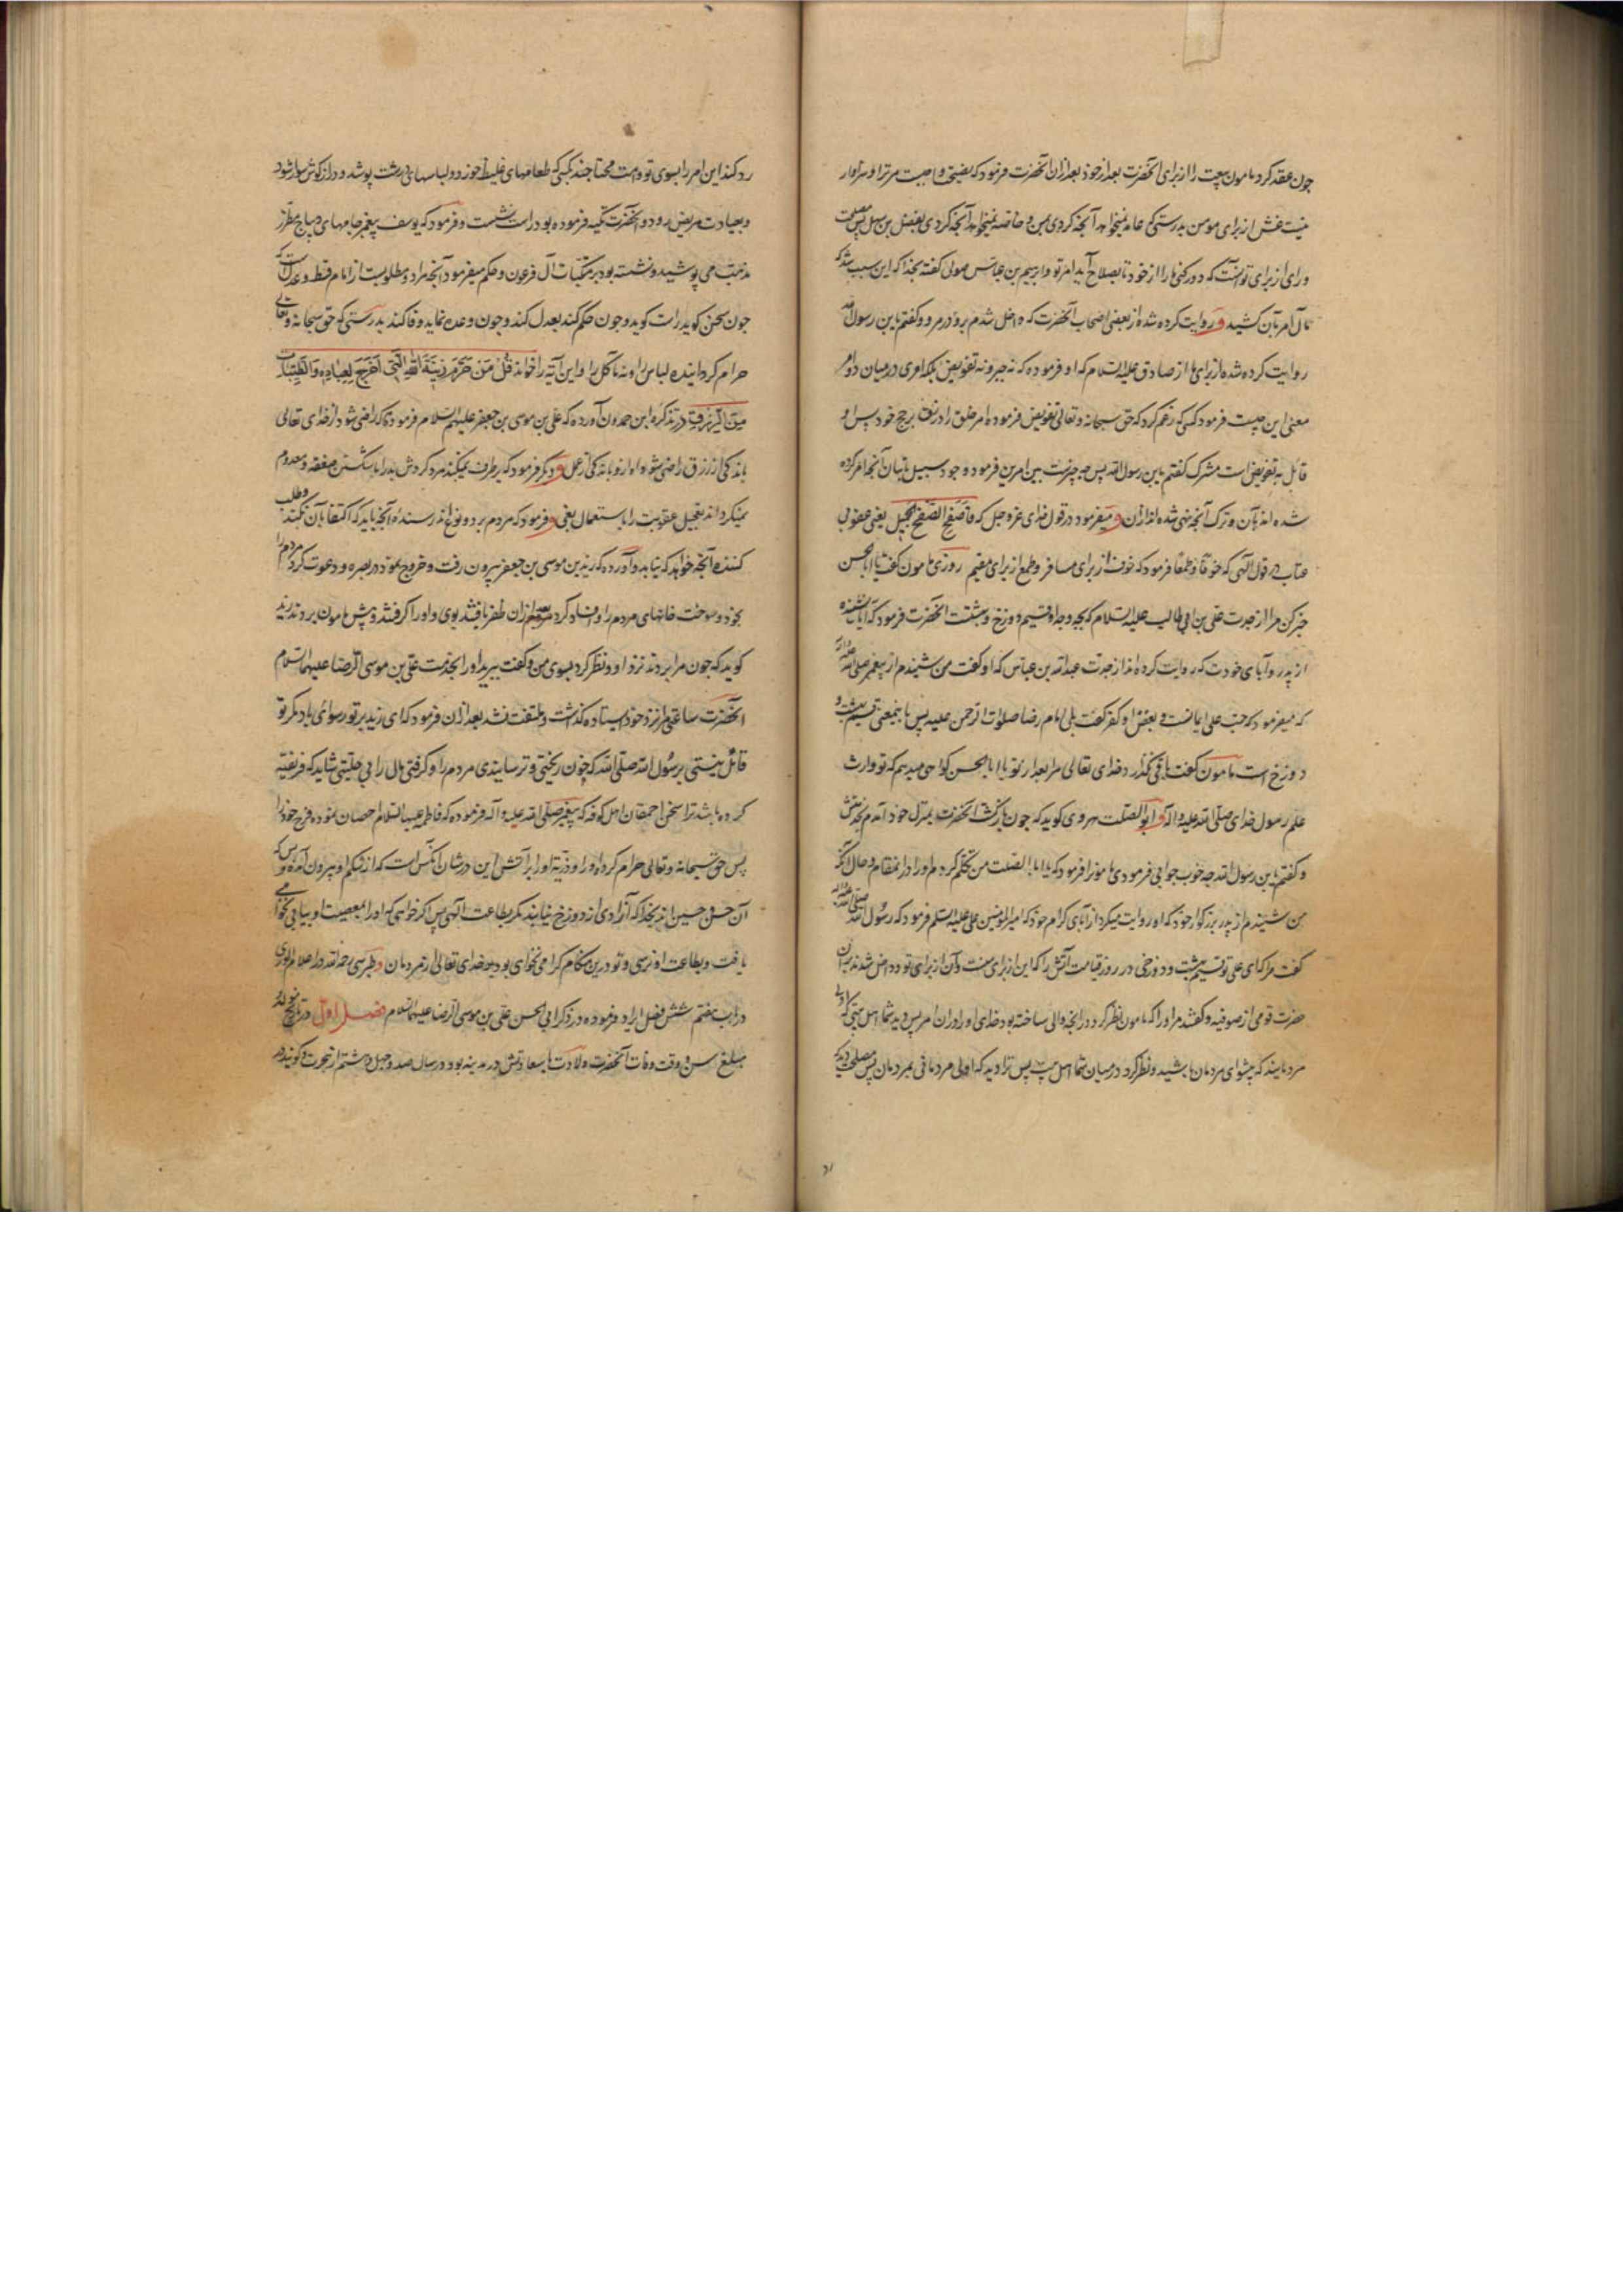 چون عقد کرد مامون بیعت را از برای آنحضرت بعد از خود بعد از ان آنحضرت فرمود که نصیحت واجبت مر ترا و سزاوار
نیست غش از برای مومن بدرستی که عامه نمیخواهد آنچه کردی بمن و خاصه نمیخواهد آنچه کردی بفضل بن سهل پس مصلحت
و رای از برای تو آنست که دور کنی ما را از خود تا بصلاح آید امر تو و ابرهیم بن عباس صولی گفته بخدا که این سبب شد که
مآل امر بآن کشید و روایت کرده شده از بعضی اصحاب آنحضرت که داخل شدم برو در مرو و گفتم یابن رسول الله
روایت کرده شده از برای ما از صادق علیه السلام که او فرموده که نه جبر و نه تفویض بلکه امری در میان دو امر
معنی این چیست فرمود کسی که زعم کرد که حق سبحانه و تعالی تفویض فرموده امر خلق را و رزق بحجج خود پس او
قائل به تفویض است مشرک گفتم یابن رسول الله پس چه چیزست بین امرین فرمود وجود سبیل باتیان آنچه امر کرده
شده اند بآن و ترک آنچه نهی شده اند از ان و میفرمود در قول خدای عزوجل که فاصفح الصفح الجمیل یعنی عفو بی
عتاب در قول الهی که خوفا و طمعا فرمود که خوف از برای مسافر و طمع از برای مقیم روزی مامون گفت یا ابا الحسن
خبر کن مرا از جدت علی بن ابی طالب علیه السلام که بچه وجه او قسیم دوزخ و بهشتست آنحضرت فرمود که آیا نشنیده
از پدر و آبای خود که روایت کرده اند از جدت عبدالله بن عباس که او گفت من شنیدم از پیغمبر صلی الله علیه وآله
که میفرمود که حب علی ایمانست و بغض او کفر گفت بلی امام رضا صلوات الرحمن علیه پس باینمعنی قسیم بهشت و
دوزخ است مامون گفت باقی نگذارد خدای تعالی مرا بعد از تو یا ابا الحسن گواهی میدهم که تو وارث
علم رسول خدای صلی الله علیه وآله و ابو الصلت هروی گوید که چون بازگشت آنحضرت بمنزل خود آمدم بخدمتش
و گفتم یابن رسول الله چه خوب جوابی فرمودی مامونرا فرمود که یا ابا الصلت من تکلم کردم او را در انمقام و حال آنکه
من شنیدم از پدر بزرگوار خود که او روایت میکرد از آبای کرام خود که امیر المؤمنین علی علیه السلم فرمود که رسول الله صلی الله علیه وآله
گفت مرا که ای علی تو قسیم بهشت و دوزخی در روز قیامت آتش را که این از برای منست و آن از برای تو و داخل شدند بر ان
حضرت قومی از صوفیه و گفتند مر او را که مامون نظر کرد در آنچه والی ساخته بود خدای او را در ان امر پس دید شما اهل بیتی که اولی
مردمانید که پیشوای مردمان باشید و نظر کرد در میان شما اهل بیت پس ترا دید که اولی مردمانی بمردمان پس مصلحت دید که
رد کند این امر را بسوی تو و امت محتاجند بکسی که طعامهای غلیظ خورد و لباسهای درشت پوشد و دراز گوش سوار شود
و بعیادت مریض رود و آنحضرت تکیه فرموده بود راست بنشست و فرمود که یوسف پیغمبر جامهای دیباج مطرز
مذهب می پوشید و نشسته بود بر متکیات آل فرعون و حکم میفرمود آنچه مراد و مطلوبست از امام قسط و عدلست که
چون سخن گوید راست گوید و چون حکم کند بعدل کند و چون وعده نماید وفا کند بدرستی که حق سبحانه و تعالی
حرام گردانیده لباس را و نه مأکل را و این آیه را خواند قُلْ مَنْ حَرَّمَ زِینَةَ اللهِ الَّتِی أَخْرَجَ لِعِبَادِهِ وَالطَّیِّبَاتِ
مِنَ الرِّزْقِ در تذکره ابن حمدون آورده که علی بن موسی بن جعفر علیهم السلام فرمود که هر که راضی شود از خدای تعالی
باندکی از رزق راضی شود او ازو باندکی از عمل و دیگر فرمود که برطرف نمیکند مرد گردش بد را با شکستن صفقه و معدوم
نمیگرداند تعجیل عقوبت را با استعمال بغی و فرمود که مردم بر دو نوع اند رسنده آنچه یابد که اکتفا بآن نکند و طلب
کننده آنچه خواهد که نیابد و آورده که زید بن موسی بن جعفر بیرون رفت و خروج نمود در بصره و دعوت کرد مردم را
بخود و سوخت خانهای مردم را و فساد کرد بعد از ان ظفر یافتند بوی و او را گرفتند و پیش مامون بردند زید
گوید که چون مرا بردند نزد او و نظر کرد بسوی من و گفت ببرید او را بخدمت علی بن موسی الرضا علیهما السلام
آنحضرت ساعتی مرا نزد خود ایستاده گذاشت و ملتفت نشد بعد از ان فرمود که ای زید بر تو رسوائی باد مگر تو
قائل نیستی برسول الله صلی الله که خون ریختی و ترسانیدی مردم را و گرفتی مال را بی حلیتی شاید که فریفته
کرده باشد ترا سخن احمقان اهل کوفه که پیغمبر صلی الله علیه وآله فرموده که فاطمه علیها السلام احصان نموده فرج خود را
پس حق سبحانه و تعالی حرام کرده او را و ذریه او را بر آتش این در شان آنکس است که از شکم او بیرون آمده و بس که
آن حسن و حسین اند بخدا که آزادی از دوزخ نیابند مگر بطاعت الهی پس اگر خواهی که او را بمعصیت او بیابی نخواهی
یافت و بطاعت او نرسی و تو درین هنگام گرامی نخواهی بود نزد خدای تعالی از مردمان و طبرسی رحمه الله در اعلام الوری
در باب هفتم شش فصل ایراد فرموده در ذکر ابی الحسن علی بن موسی الرضا علیهما السلام فصل اول در تاریخ مولد و
مبلغ سن و وقت وفات آنحضرت ولادت با سعادتش در مدینه بود در سال صد و چهل و هشتم از هجرت و گویند در